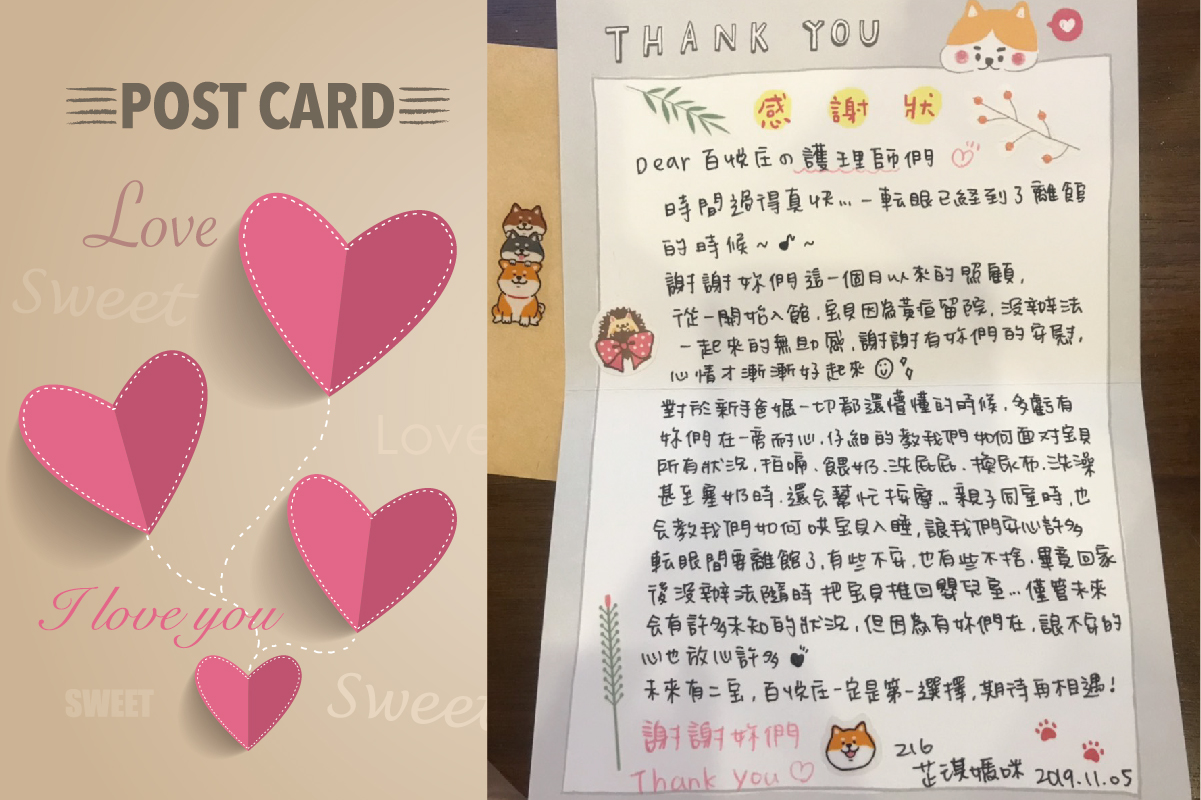 POST CARD
Love
Sweet
Love
I love you
SWEET
Sweet
THANK YOU
感謝狀
Dear 百悅庄の護理師們
時間過得真快... 一転眼已経到了離館
的時候~♪~
謝謝妳們這一個月以來的照顧,
從一開始入館,宝貝因為黃疸留院,沒辦法
一起來的無助感,謝謝有妳們的安慰,
心情才漸漸好起來
對於新手爸媽一切都還懵懂的時候,多虧有
妳們在一旁耐心、仔細的教我們如何面对宝貝
所有狀況,拍嗝、餵奶、洗屁屁、換尿布、洗澡
甚至塞奶時,還会幫忙按摩...親子同室時,也
会教我們如何哄宝貝入睡,讓我們安心許多
転眼間要離館了,有些不安,也有些不捨,畢竟回家
後沒辦法隨時把宝貝推回嬰兒室...僅管未來
会有許多未知的狀況,但因為有妳們在,讓不安的
心也放心許多
未來有二宝,百悅庄一定是第一選擇,期待再相遇!
謝謝妳們
Thank you
216
芷淇媽咪 2019.11.05